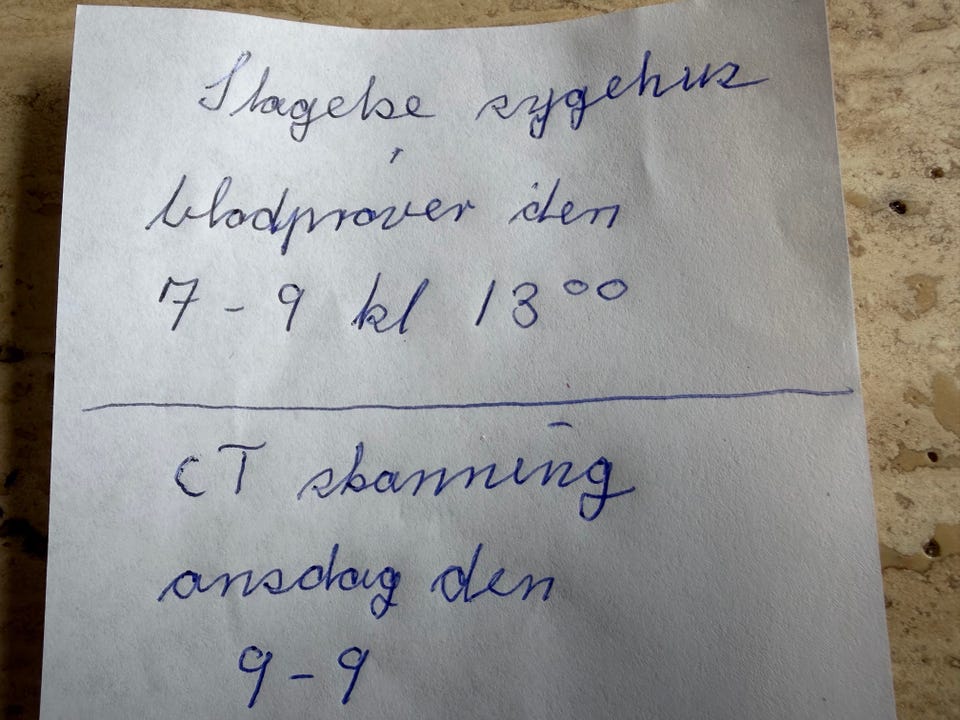 Slagelse sygehus
blodprøver den
7-9 kl 13⁰⁰
CT skanning
onsdag den
9-9